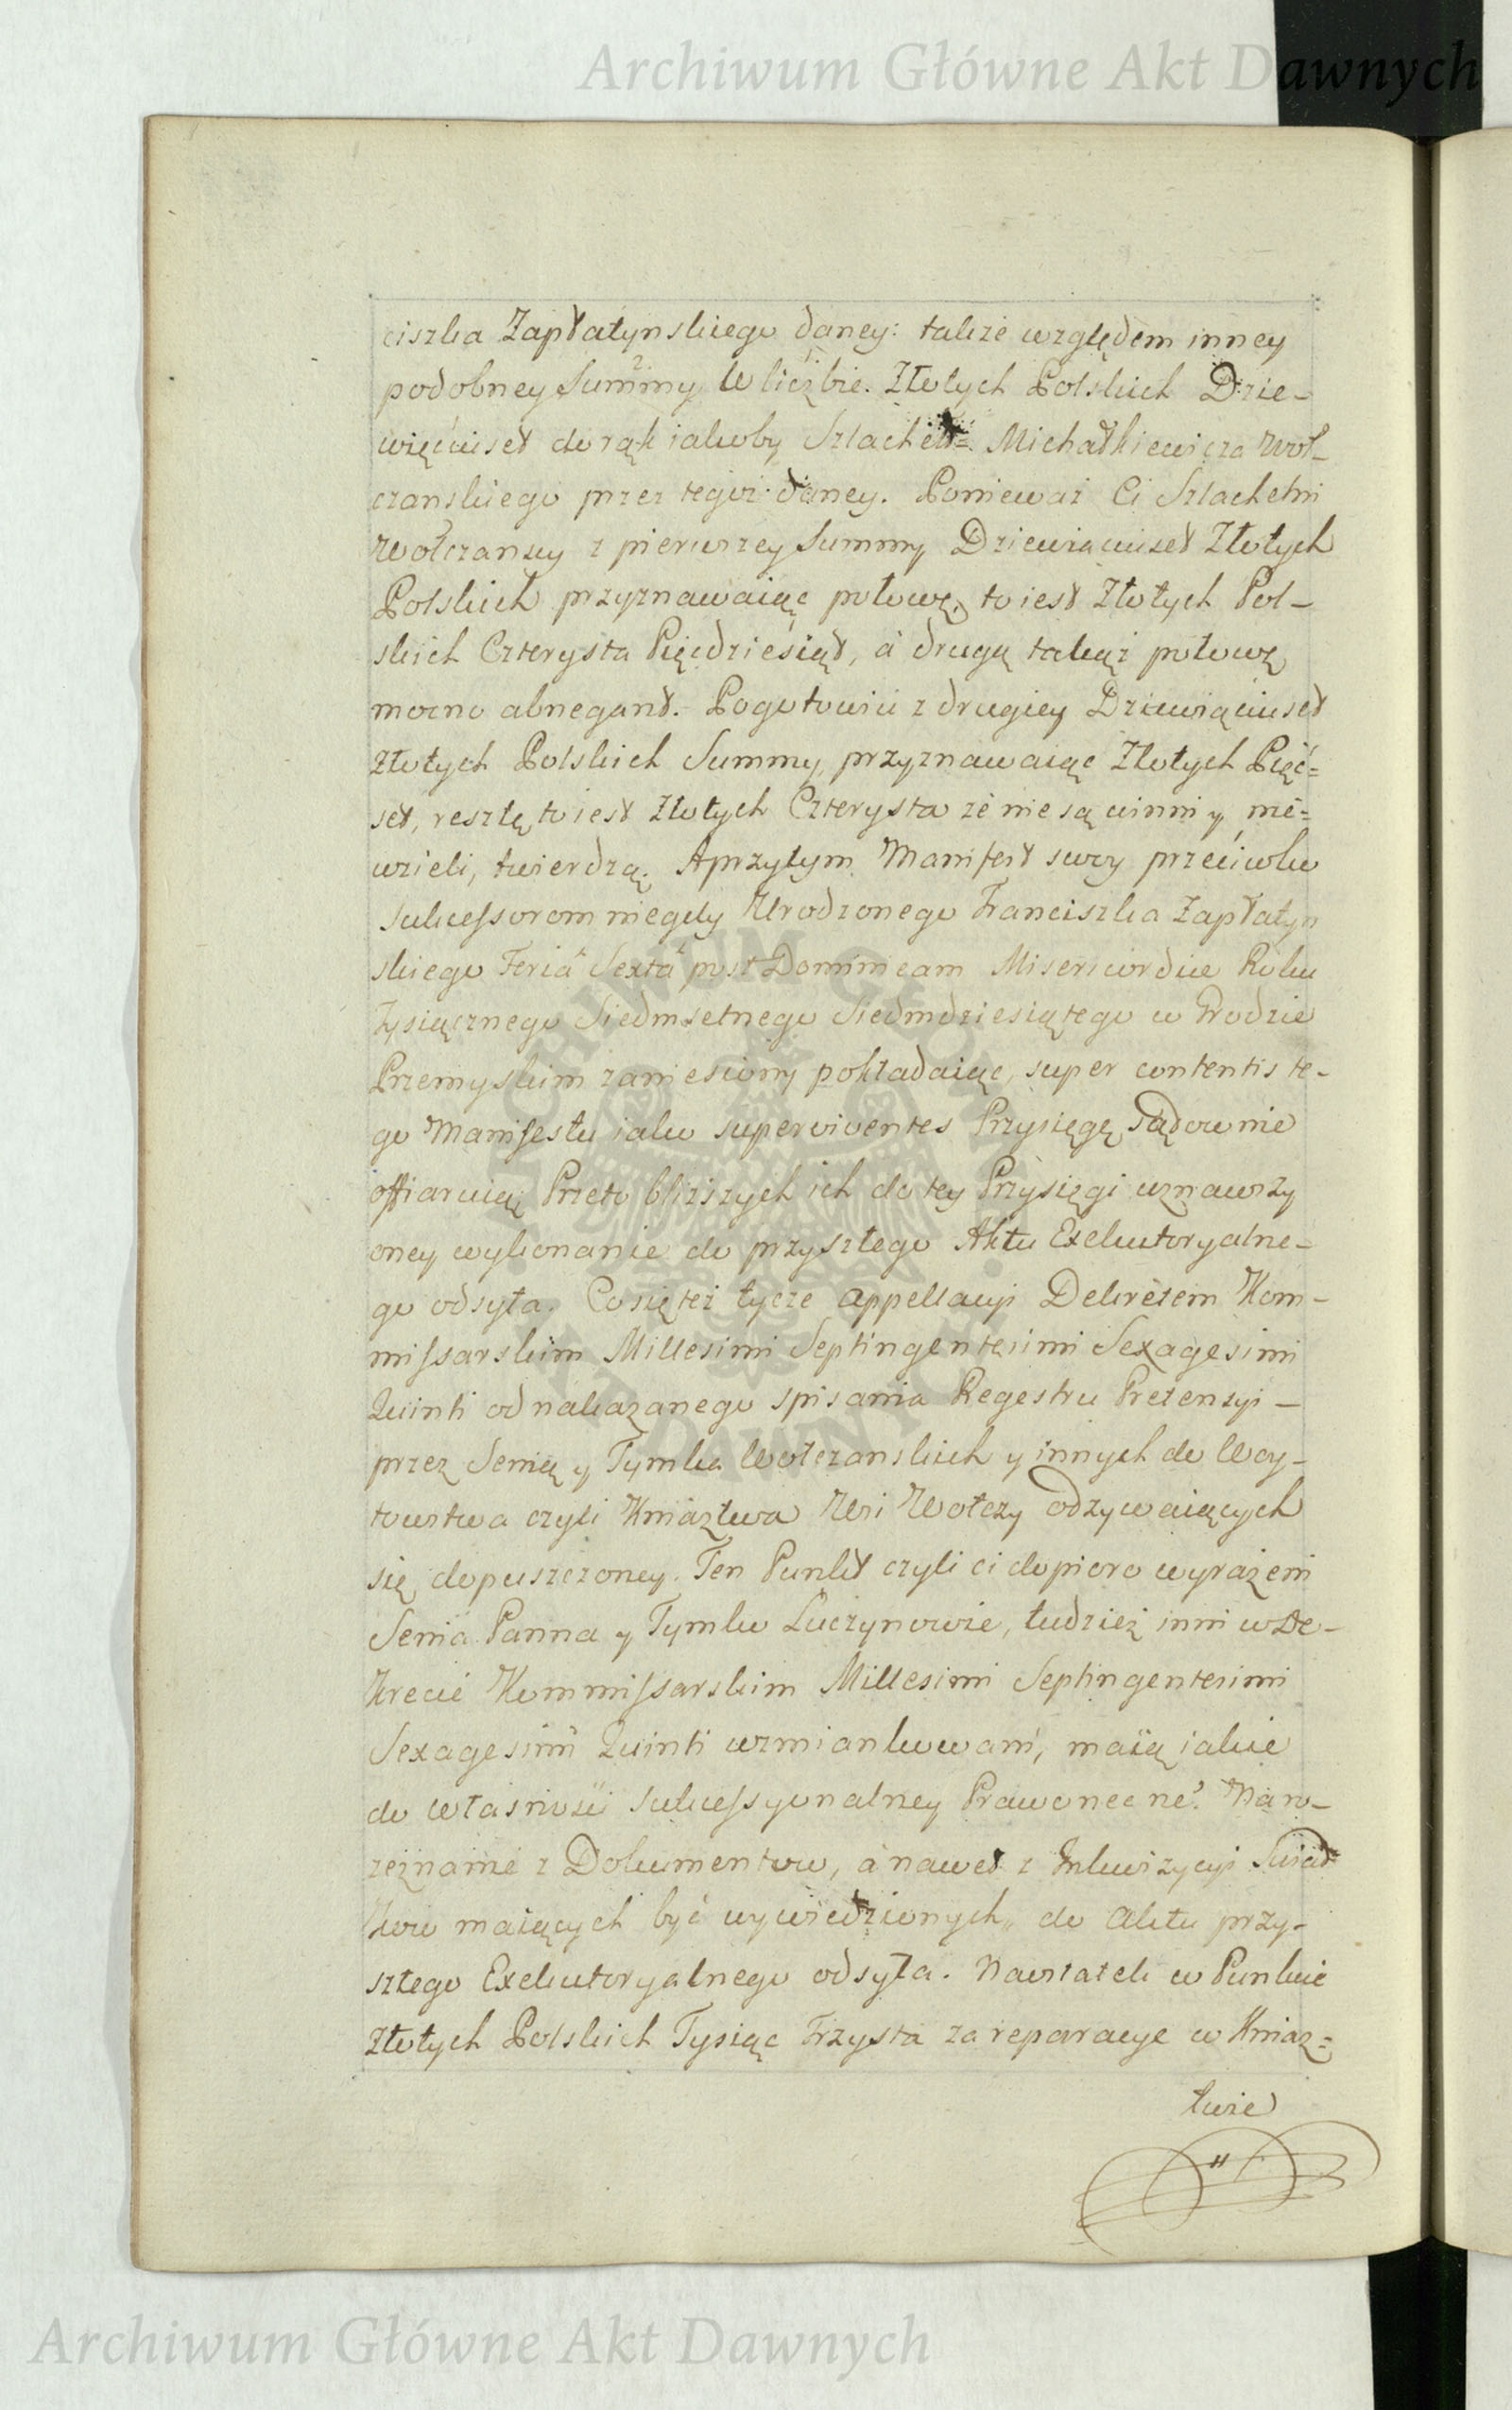 Archiwum Główne Akt Dawnych
ciszka Zapłatynskiego daney: także względem inney
podobney Summy w liczbie Złotych Polskich Dzie-
więciuset do rąk jakoby Szlachetn= Michałkiewicza Woł-
czanskiego przez tegoż daney. Ponieważ Ci Szlachetni
Wołczanscy z pierwszey Summy Dziewiąciuset Złotych
Polskich przyznawaiąc połowę, to iest Złotych Pol-
skich Czterysta Pięcdziesiąt, à drugą takąż połowę
mocno abnegant. Pogotowiu z drugiey Dziewiąciuset
Złotych Polskich Summy przyznawaiąc Złotych Pięć=
set, resztę to iest Złotych Czterysta że nie są winni y nie=
wzieli, twierdzą. A przytym Manifest swoy przeciwko
Sukcessorom niegdy Urodzonego Franciszka Zapłatyn
skiego Feriâ Sextâ post Dominicam Misericordiæ Roku
Tysiącznego Siedmsetnego Siedmdziesiątego w Grodzie
Przemyskim zaniesiony pokładaiąc, super contentis te-
go Manifestu iako superviventes Przysięgę Sądownie
offiaruią Przeto bliższych ich do tey Przysięgi uznawszy
oney wykonanie do przyszłego Aktu Exekutoryalne-
go odsyła. Co się też tycze Appellacyi Dekretem Kom-
missarskim Millesimi Septingentesimi Sexagesimi
Quinti od nakazanego spisania Regestru Pretensyi -
przez Senię y Tymka Wołczanskich y innych do Woy-
towstwa czyli Kniaztwa Wsi Wołczy odzywaiących
się dopuszczoney. Ten Punkt czyli ci dopiero wyrażeni
Senia Panna y Tymko Łuczynowie, tudzież inni w De-
krecie Kommissarskim Millesimi Septingentesimi
Sexagesimi Quinti wzmiankowani, maią iakie
do własności Sukcessyonalney Prawo nec ne? Na ro-
zeznanie z Dokumentow, à nawet z Inkwizycyi Swiad
kow maiących być wywiedzionych, do Aktu przy-
szłego Exekutoryalnego odsyła. Nawstatek w Punkcie
Złotych Polskich Tysiąc Trzysta za reparacye w Kniaz=
twie
Archiwum Główne Akt Dawnych